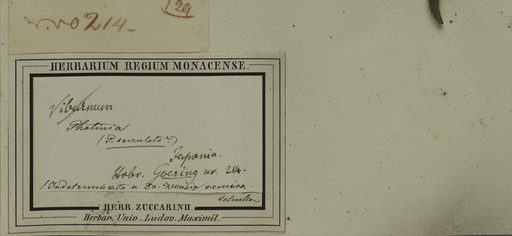 129
No 214.
HERBARIUM REGIUM MONACENSE.
Viburnum
Photinia
(P. serrulata?)
Japonia.
Herbr. Goering no. 214.
(Indeterminata a
HERB. ZUCCARINII
Herbar. Univ. Ludov. Maximil.